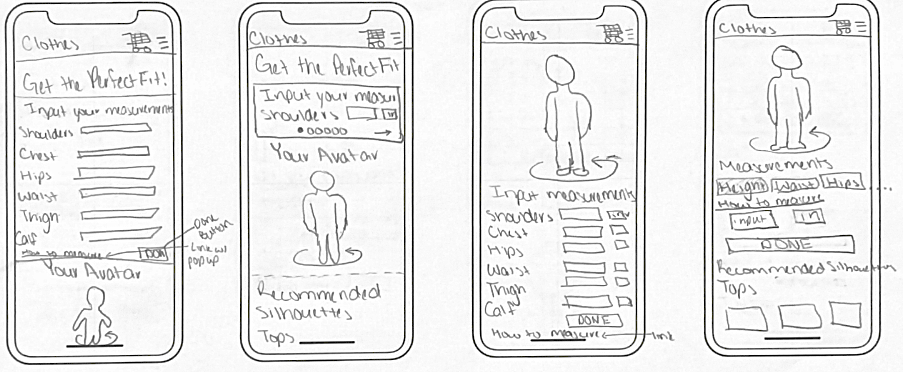 Clothes
Get the Perfect Fit!
Input your measurements
Shoulders
Chest
Hips
Waist
Thigh
Calf
How to measure
DONE
Done
Button
Link w/
popup
Your Avatar
Clothes
Get the Perfect Fit
Input your measur
Shoulders
in
Your Avatar
Recommended
Silhouettes
Tops
Clothes
Input measurements
Shoulders
in
Chest
Hips
Waist
Thigh
Calf
DONE
How to measure
link
Clothes
Measurements
Height Waist Hips ....
How to measure
input in
DONE
Recommended Silhouettes
Tops